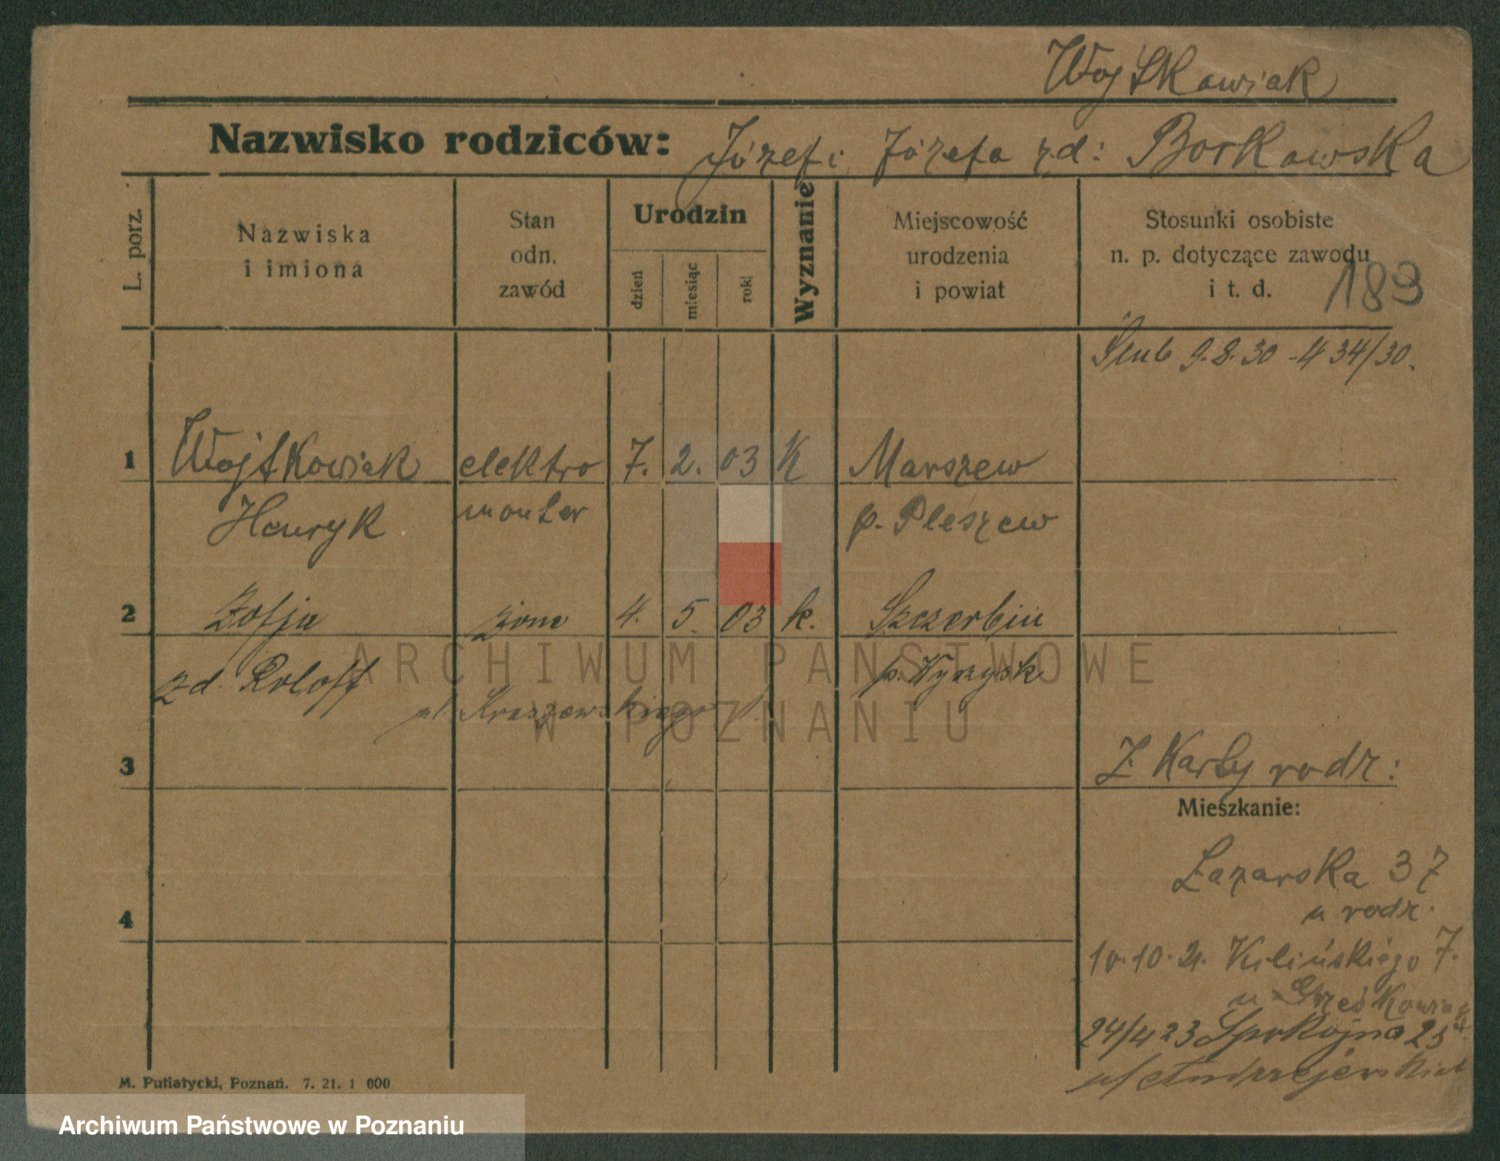 Wojtkowiak
Nazwisko rodziców: Józef i Józefa z.d: Borkowska
L. porz.
Nazwiska
i imiona
Stan
odn.
zawód
Urodzin
dzień
miesiąc
rok
Wyznanie
Miejscowość
urodzenia
i powiat
Stosunki osobiste
n. p. dotyczące zawodu
i t. d.
189
Ślub 9.8.30 434/30.
1 Wojtkowiak elektro 7. 2. 03 K Marszew
Henryk monter p. Pleszew
2 Zofja żona 4. 5. 03 k. Szczerbin
zd. Roloff p. Wyrzysk
ul. Kraszewskiego
ARCHIWUM PAŃSTWOWE
W POZNANIU
3
Z Karty rodz:
Mieszkanie:
Łazarska 37
u rodz.
4
10.10.21. Kilińskiego 7.
u Grześkowiak
24/4 23 Spokojna 25
u/Andrzejewskich
M. Putiatycki, Poznań. 7. 21. 1 000
Archiwum Państwowe w Poznaniu